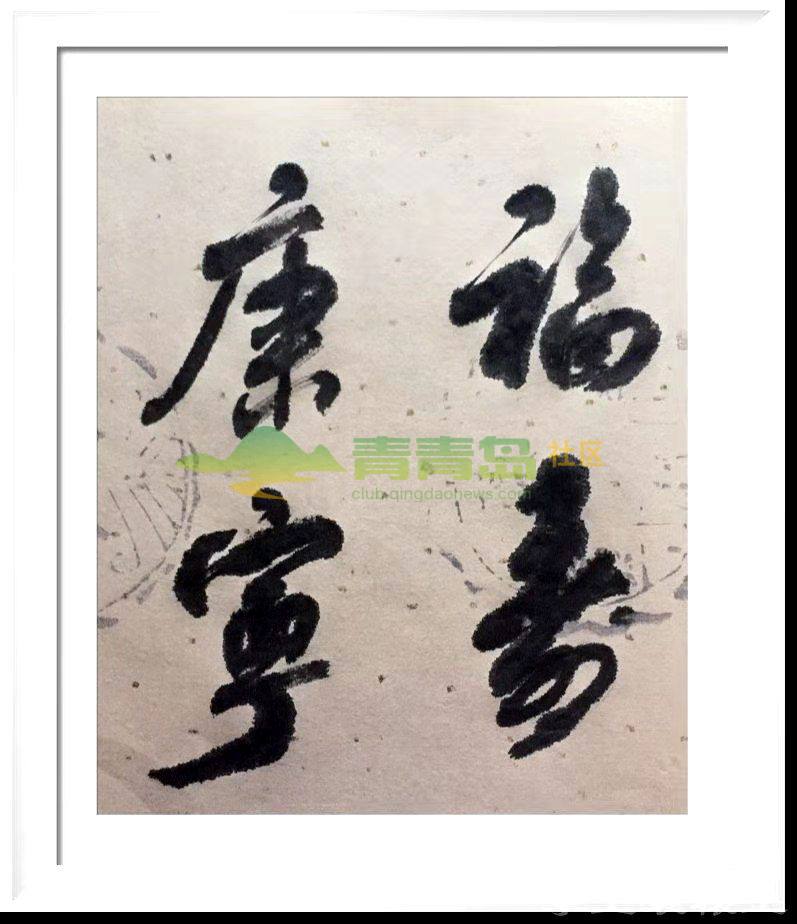 福寿
康宁
青青岛社区
club.qingdaonews.com